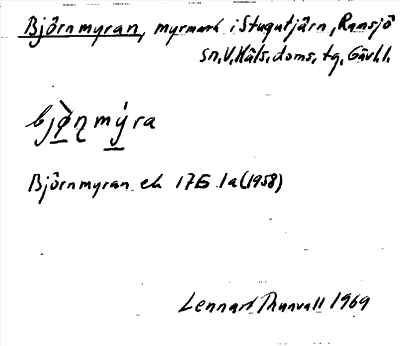 Björnmyran, myrmark i Stugutjärn, Ramsjö
sn, V. Häls. doms. tg, Gävl. l.
bjö̀ɳmýra
Björnmyran ek 17G 1a (1958)
Lennart Thunvall 1969